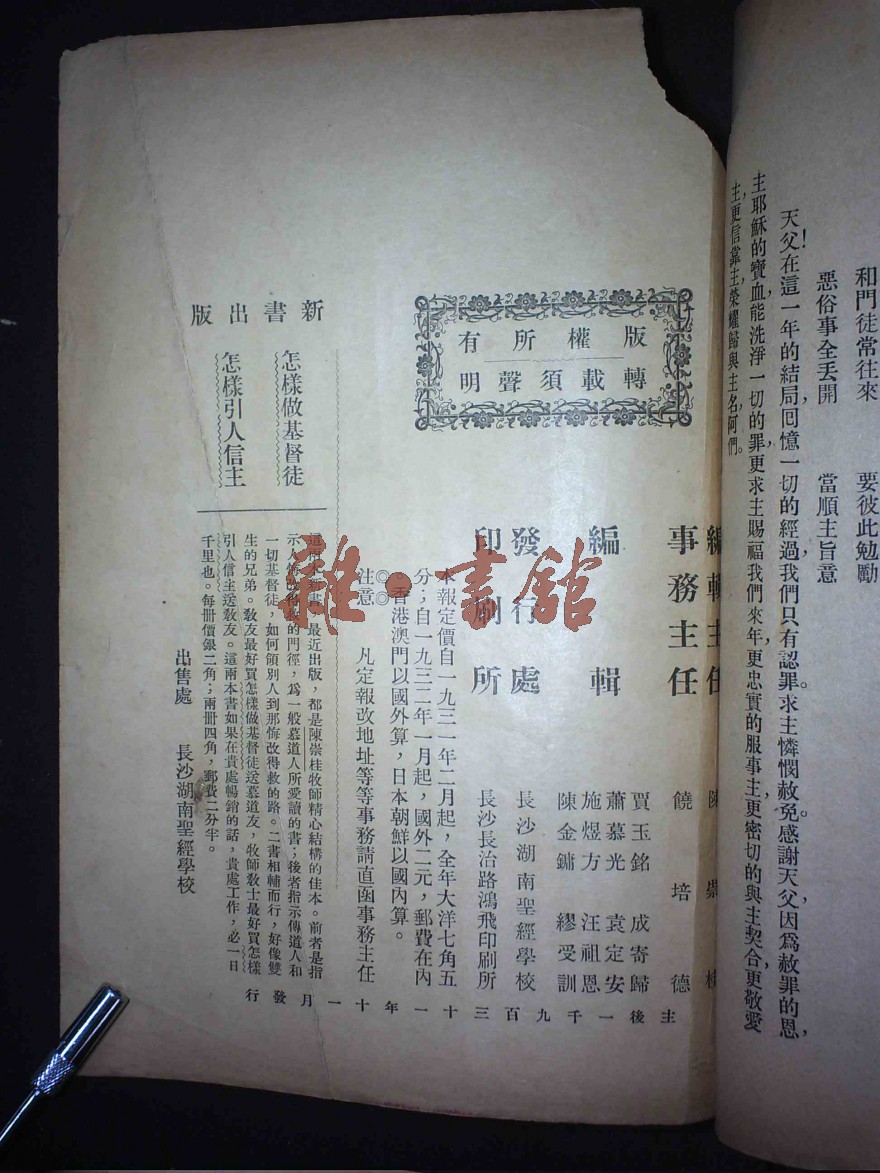 和門徒常往來　要彼此勉勵
惡俗事全丟開　當順主旨意
天父！在這一年的結局，回憶一切的經過，我們只有認罪。求主憐憫赦免。感謝天父，因為赦罪的恩，
主耶穌的寶血能洗淨一切的罪，更求主賜福我們來年，更忠實的服事主，更密切的與主契合，更敬愛
主，更信靠主，榮耀歸與主名，阿們。
版權所有
轉載須聲明
編輯主任　陳崇桂
事務主任　饒培德
編輯　賈玉銘　成寄歸
蕭慕光　袁定安
施煜方　汪祖恩
陳金鏞　繆受訓
發行處　長沙湖南聖經學校
印刷所　長沙長治路鴻飛印刷所
主後一千九百三十一年十一月發行
本報定價自一九三一年二月起，全年大洋七角五
分；自一九三二年一月起，國外二元，郵費在內
。香港澳門以國外算，日本朝鮮以國內算。
注意◎◎　凡定報改地址等等事務請直函事務主任
新書出版
怎樣做基督徒
怎樣引人信主
這兩本新書，最近出版，都是陳崇桂牧師精心結構的佳本。前者是指
示人悔改得救的門徑，為一般慕道人所愛讀的書；後者指示傳道人和
一切基督徒，如何領別人到那悔改得救的路。二書相輔而行，好像雙
生的兄弟。教友最好買怎樣做基督徒送慕道友，牧師教士最好買怎樣
引人信主送教友。這兩本書如果在貴處暢銷的話，貴處工作，必一日
千里也。每冊價銀二角；兩冊四角，郵費二分半。
出售處　長沙湖南聖經學校
雜·書館